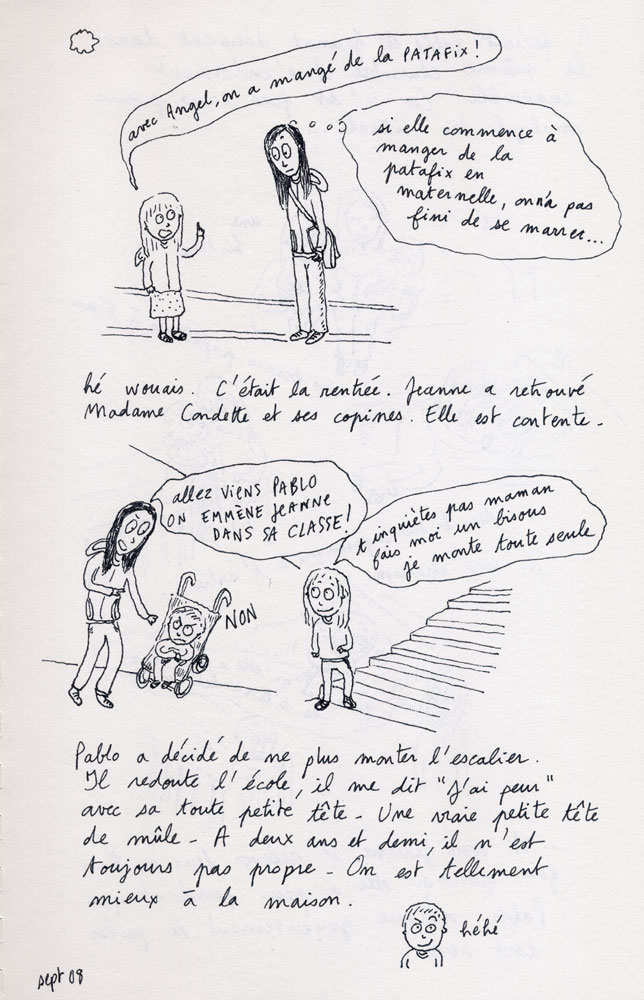 avec Angel, on a mangé de la PATAFIX!
si elle commence à
manger de la
patafix en
maternelle, on n'a pas
fini de se marrer...
hé wouais. C'était la rentrée. Jeanne a retrouvé
Madame Condette et ses copines. Elle est contente.
allez viens PABLO
ON EMMÈNE JEANNE
DANS SA CLASSE!
t'inquiètes pas maman
fais moi un bisous
je monte toute seule
NON
Pablo a décidé de ne plus monter l'escalier.
Il redoute l'école, il me dit "J'ai peur"
avec sa toute petite tête - Une vraie petite tête
de mûle - A deux ans et demi, il n'est
toujours pas propre - On est tellement
mieux à la maison.
héhé
sept 08